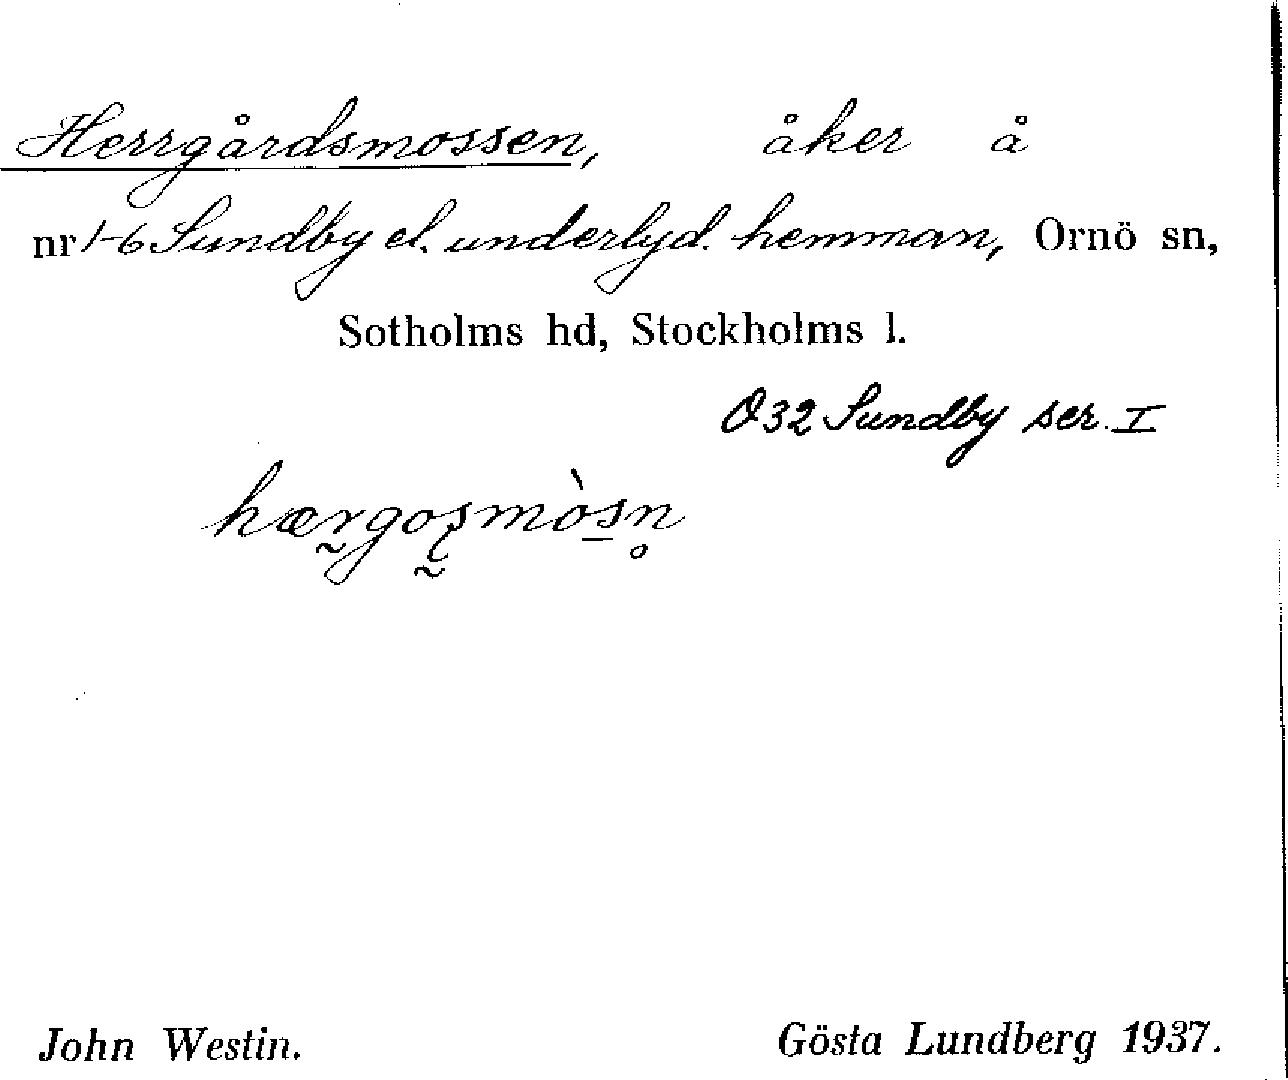 Herrgårdsmossen, åker å
nr 1-6 Sundby el. underlyd. hemman, Ornö sn,
Sotholms hd, Stockholms l.
Ö32 Sundby ser. I
hær̰goʂ̰mòs̱n̥
John Westin. Gösta Lundberg 1937.